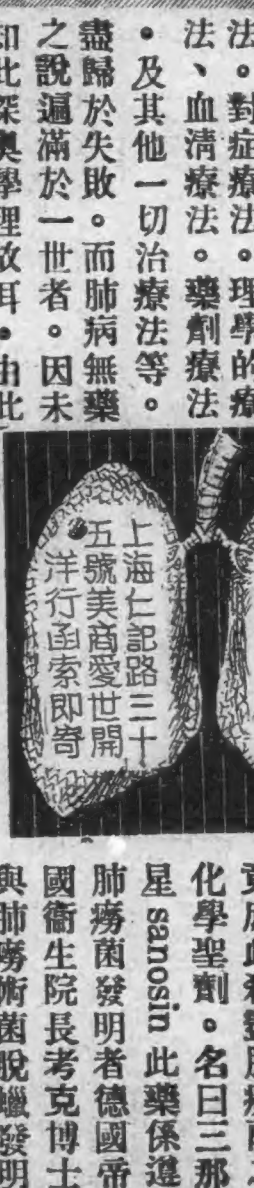 法。對症療法。理學的療
法、血清療法。藥劑療法
。及其他一切治療法等。
盡歸於失敗。而肺病無藥
之說遍滿於一世者。因未
知此深奧學理故耳。由此
上海仁記路三十
五號美商愛世開
洋行函索卽寄
化學聖劑。名曰三那
星 sanosin 此藥係遵
肺癆菌發明者德國帝
國衞生院長考克博士
與肺癆術菌脫蠟發明